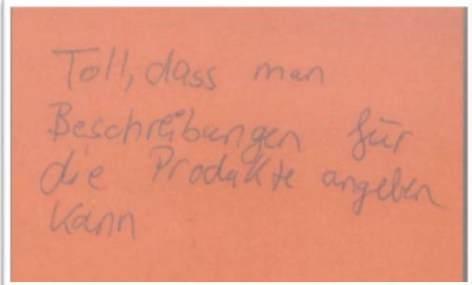 Toll, dass man
Beschreibungen für
die Produkte angeben
kann